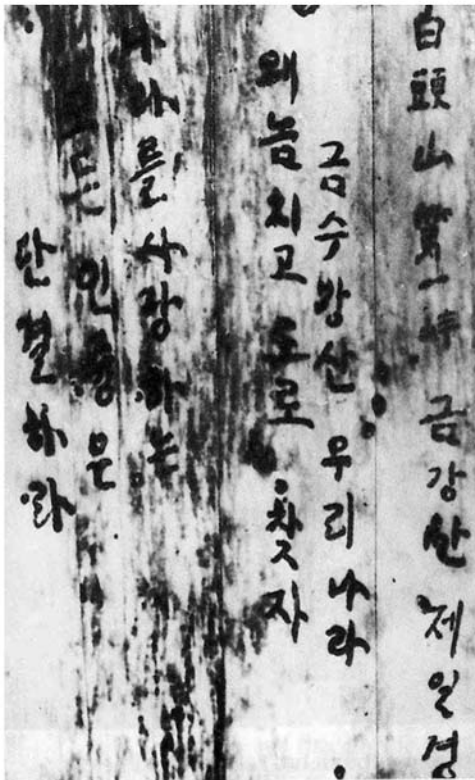 白頭山第一峰 금강산 제일경
금수강산 우리나라
왜놈치고 도로 찾자
나라를 사랑하는
모든 민중은
단결하라